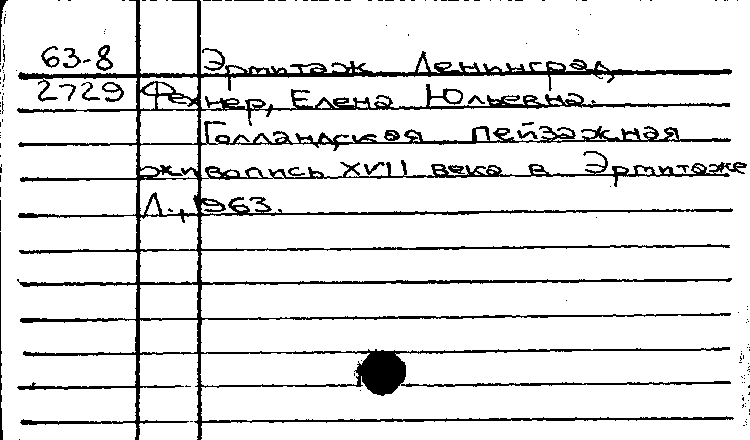 63-8 Эрмитаж Ленинград,
2729 Фехнер, Елена Юльевна.
Голландская пейзажная
живопись XVII века в Эрмитаже
Л., 1963.